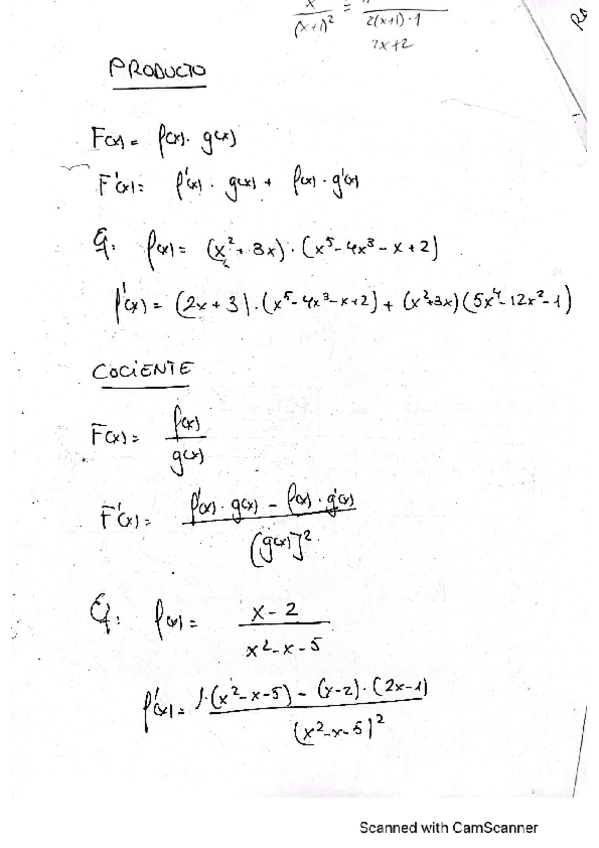 x/(x+1)² = 2(x+1)·1
2x+2
PRODUCTO
F(x) = f(x) · g(x)
F'(x) = f'(x) · g(x) + f(x) · g'(x)
Ej: f(x) = (x² + 3x) · (x⁵ - 4x³ - x + 2)
f'(x) = (2x + 3) · (x⁵ - 4x³ - x + 2) + (x² + 3x) (5x⁴ - 12x² - 1)
COCIENTE
F(x) = f(x) / g(x)
F'(x) = f'(x) · g(x) - f(x) · g'(x) / [g(x)]²
Ej: f(x) = x - 2 / x² - x - 5
f'(x) = 1·(x² - x - 5) - (x - 2) · (2x - 1) / (x² - x - 5)²
Scanned with CamScanner